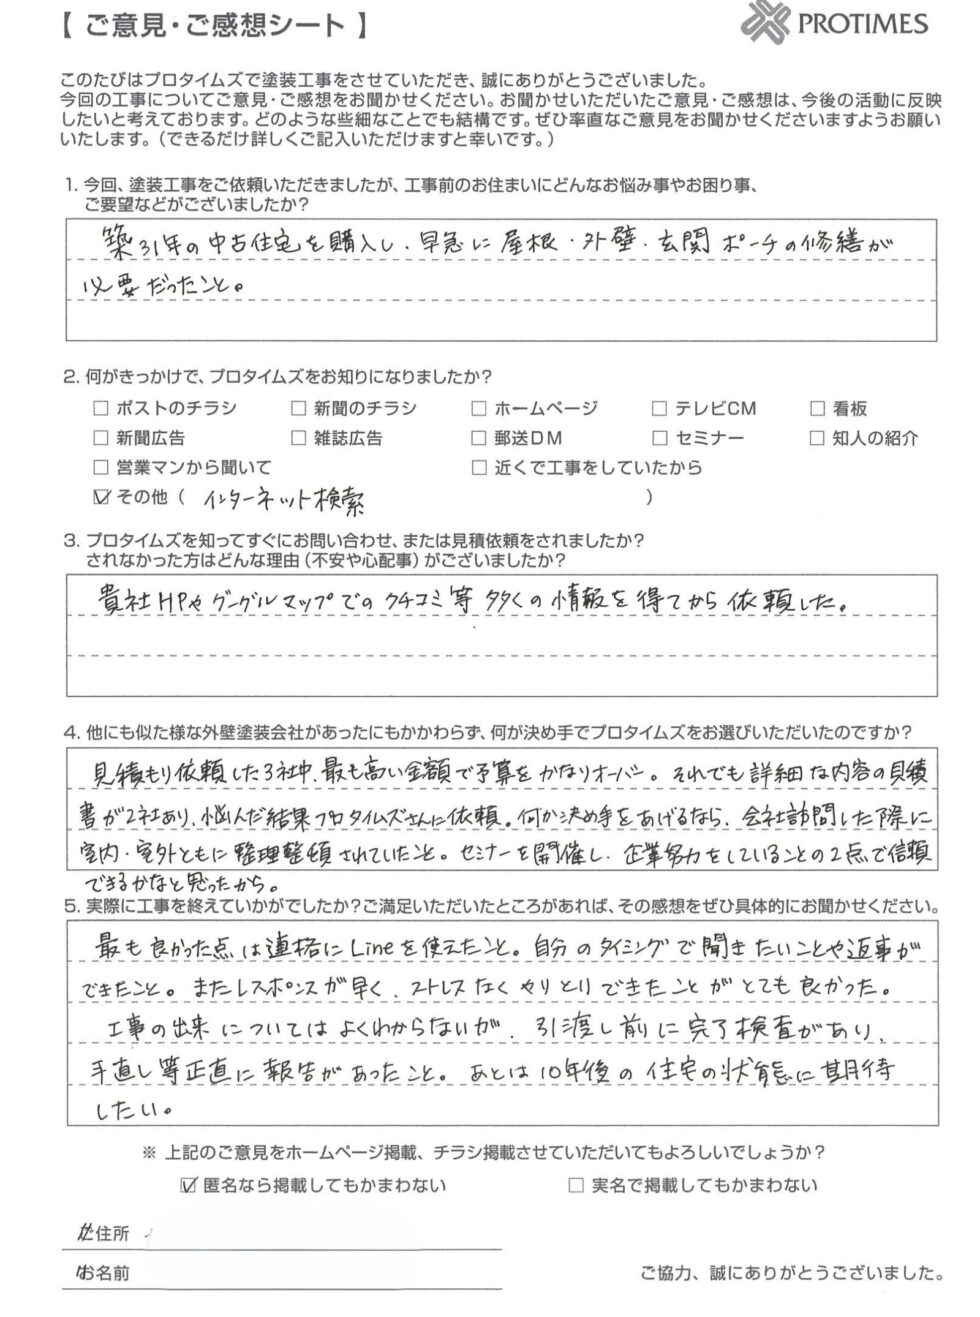 【 ご意見・ご感想シート 】
PROTIMES
このたびはプロタイムズで塗装工事をさせていただき、誠にありがとうございました。
今回の工事についてご意見・ご感想をお聞かせください。お聞かせいただいたご意見・ご感想は、今後の活動に反映
したいと考えております。どのような些細なことでも結構です。ぜひ率直なご意見をお聞かせくださいますようお願い
いたします。（できるだけ詳しくご記入いただけますと幸いです。）
1. 今回、塗装工事をご依頼いただきましたが、工事前のお住まいにどんなお悩み事やお困り事、
ご要望などがございましたか？
築31年の中古住宅を購入し、早急に屋根・外壁・玄関ポーチの修繕が
必要だったこと。
2. 何がきっかけで、プロタイムズをお知りになりましたか？
□ ポストのチラシ □ 新聞のチラシ □ ホームページ □ テレビCM □ 看板
□ 新聞広告 □ 雑誌広告 □ 郵送DM □ セミナー □ 知人の紹介
□ 営業マンから聞いて □ 近くで工事をしていたから
☑ その他（ インターネット検索 ）
3. プロタイムズを知ってすぐにお問い合わせ、または見積依頼をされましたか？
されなかった方はどんな理由（不安や心配事）がございましたか？
貴社HPやグーグルマップでのクチコミ等多くの情報を得てから依頼した。
4. 他にも似た様な外壁塗装会社があったにもかかわらず、何が決め手でプロタイムズをお選びいただいたのですか？
見積もり依頼した3社中、最も高い金額で予算をかなりオーバー。それでも詳細な内容の見積
書が2社あり、悩んだ結果プロタイムズさんに依頼。何か決め手をあげるなら、会社訪問した際に
室内・室外ともに整理整頓されていたこと。セミナーを開催し、企業努力をしていることの2点で信頼
できるかなと思ったから。
5. 実際に工事を終えていかがでしたか？ご満足いただいたところがあれば、その感想をぜひ具体的にお聞かせください。
最も良かった点は連絡にLineを使えたこと。自分のタイミングで聞きたいことや返事が
できたこと。またレスポンスが早く、ストレスなくやりとりできたことがとても良かった。
工事の出来についてはよくわからないが、引渡し前に完了検査があり、
手直し等正直に報告があったこと。あとは10年後の住宅の状態に期待
したい。
※ 上記のご意見をホームページ掲載、チラシ掲載させていただいてもよろしいでしょうか？
☑ 匿名なら掲載してもかまわない □ 実名で掲載してもかまわない
ご住所
お名前
ご協力、誠にありがとうございました。